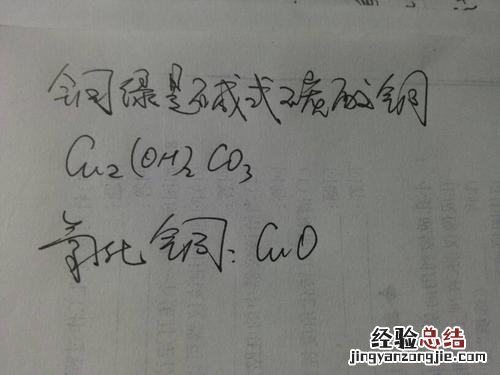 铜绿是碱式碳酸铜
Cu2(OH)2CO3
氧化铜:CuO
经验总结
jingyanzongjie.com